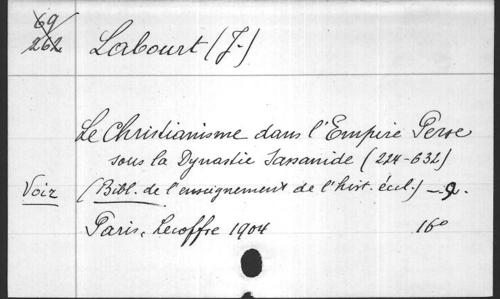 69
262
Labourt (J.)
Le Christianisme dans l'Empire Perse
sous la Dynastie Sassanide (224-632)
Voir (Bibl. de l'enseignement de l'hist. éccl.) - 9.
Paris, Lecoffre 1904 16°